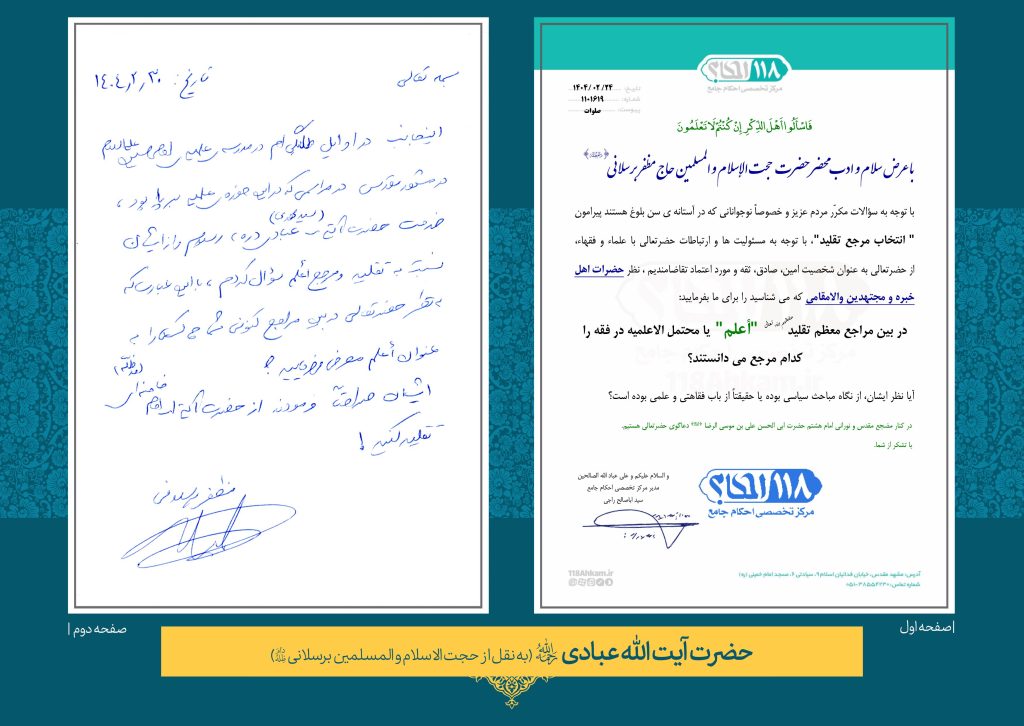 ۱۱۸ احکام
مرکز تخصصی احکام جامع
تاریخ: ۱۴۰۴/۰۲/۲۴
شماره: ۱۱۰۱۶۱۹
پیوست: صلوات
فَاسْأَلُوا أَهْلَ الذِّكْرِ إِنْ كُنْتُمْ لَا تَعْلَمُونَ
با عرض سلام و ادب محضر حضرت حجت الاسلام و المسلمین حاج مظفر برسلانی
با توجه به سؤالات مکرّر مردم عزیز و خصوصاً نوجوانانی که در آستانه ی سن بلوغ هستند پیرامون
" انتخاب مرجع تقلید"، با توجه به مسئولیت ها و ارتباطات حضرتعالی با علماء و فقهاء،
از حضرتعالی به عنوان شخصیت امین، صادق، ثقه و مورد اعتماد تقاضامندیم ، نظر حضرات اهل
خبره و مجتهدین والامقامی که می شناسید را برای ما بفرمایید:
در بین مراجع معظم تقلید "أعلم" یا محتمل الاعلمیه در فقه را
کدام مرجع می دانستند؟
آیا نظر ایشان، از نگاه مباحث سیاسی بوده یا حقیقتاً از باب فقاهتی و علمی بوده است؟
در کنار مضجع مقدس و نورانی امام هشتم حضرت ابی الحسن علی بن موسی الرضا دعاگوی حضرتعالی هستیم.
با تشکر از شما.
و السلام علیکم و علی عباد الله الصالحین
مدیر مرکز تخصصی احکام جامع
سید اباصالح راجی
۱۱۸ احکام
مرکز تخصصی احکام جامع
118Ahkam.ir
118Ahkam.ir
آدرس: مشهد مقدس، خیابان فدائیان اسلام ۹، سیادتی ۶، مسجد امام خمینی (ره)
شماره تماس: ۳۸۵۵۴۲۳۰-۰۵۱
صفحه اول
بسمه تعالی
تاریخ: ۱۴۰۴٫۲٫۳۰
اینجانب در اوایل طلبگی ام در مدرسه ی علمیه ی
در مشهد مقدس در مراسمی که در این حوزه ی علمیه برپا بود ،
خدمت حضرت آیت الله عبادی رسیدم و از ایشان
نسبت به تقلید و مرجع أعلم سؤال کردم ، با این عبارت که
به نظر حضرتعالی در بین مراجع کنونی شما چه کسی را به
عنوان أعلم معرفی می فرمایید ؟
ایشان صراحتاً فرمودند از حضرت آیة الله امام خامنه ای
تقلید کنید !
مظفر برسلانی
صفحه دوم
حضرت آیت الله عبادی رحمه الله (به نقل از حجت الاسلام والمسلمین برسلانی)